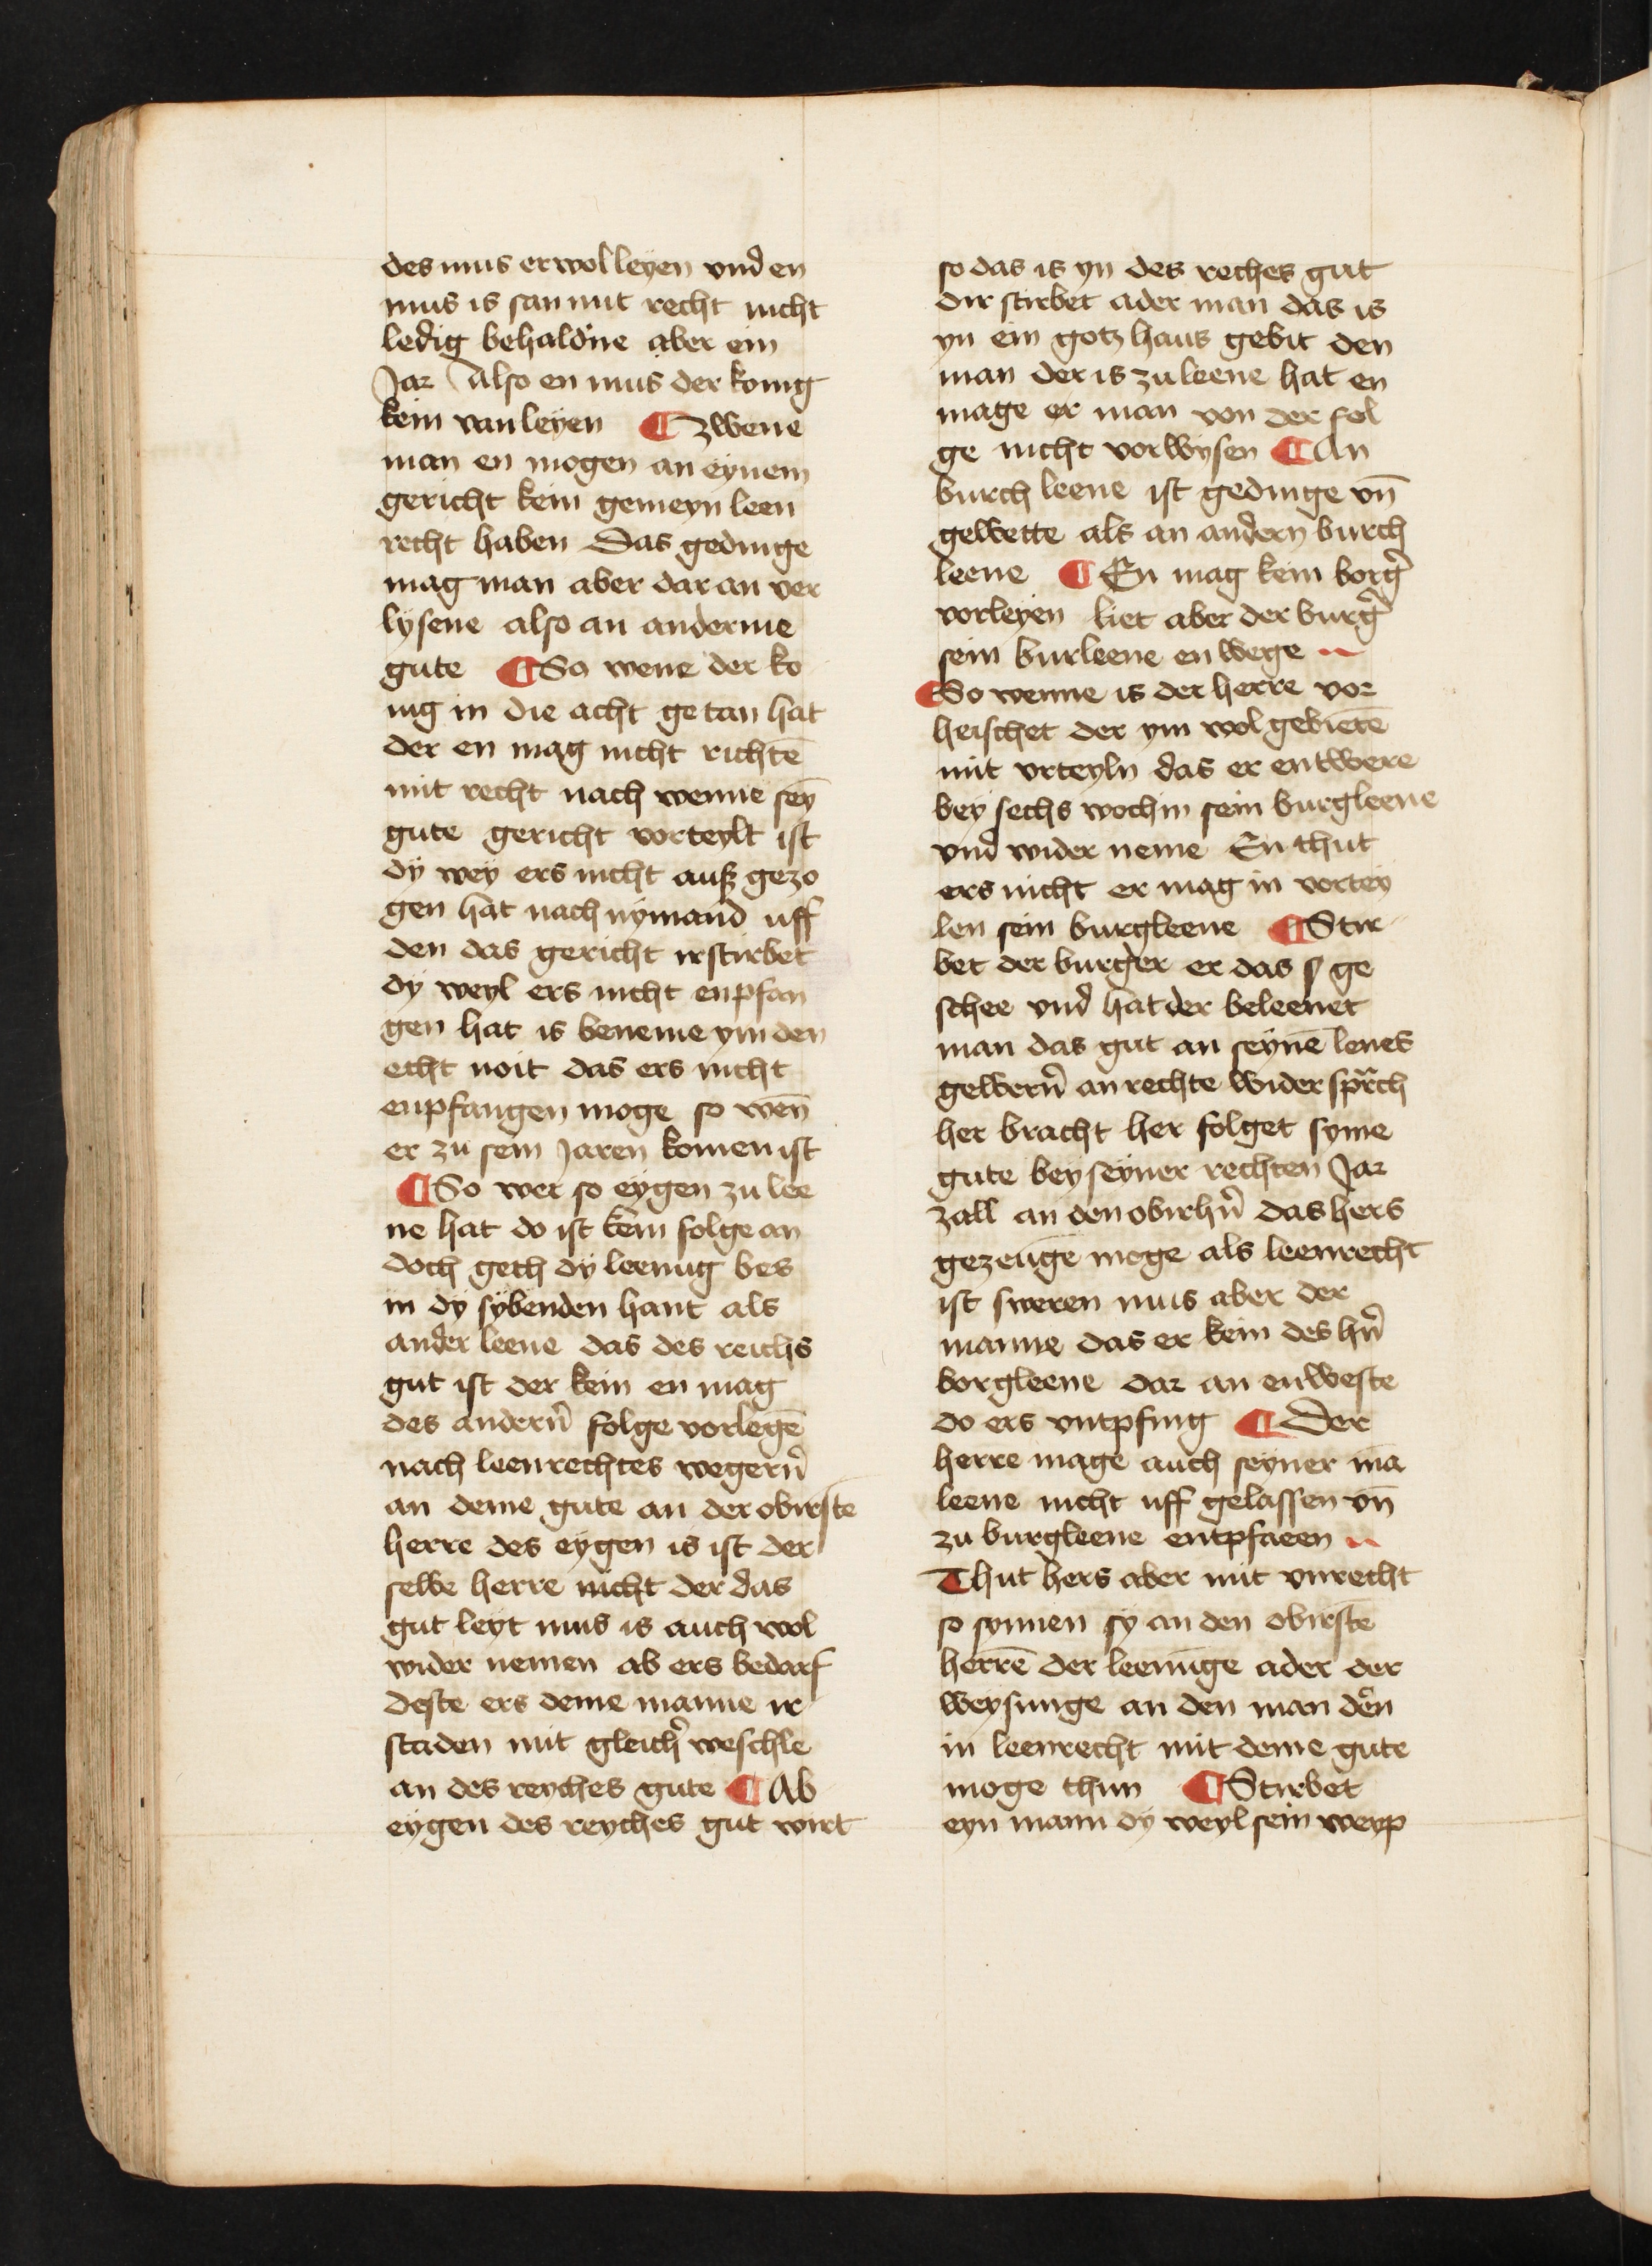 des mus er wol leyen vnd en
mus is san mit recht nicht
ledig behaldne aber ein
Jar Also en mus der konig
kein van leyen ¶ Zwene
man en mogen an eynem
gericht kein gemeyn leen
recht haben Das gedinge
mag man aber dar an ver
lysene also an anderme
gute ¶ So wene der ko
nig in die acht getan hat
der en mag nicht richtē
mit recht nach wenne seȳ
gute gericht vorteylt ist
dy wey ers nicht auß gezo
gen hat nach nymand uff
den das gericht irstirbet
dy weyl ers nicht enpfan
gen hat is beneme ym den
echt noit das ers nicht
enpfangen moge so wen̄
er zu sein Jaren komen ist
¶ So wer so eygen zu lee
ne hat do ist kein folge an
doch geth dy leenug bes
in dy sybenden hant als
ander leene das des reichs
gut ist der kein en mag
des andern̉ folge vorlegē
nach leenrechtes wegern̉
an deme gute an der obirste
herre des eygen is ist der
selbe herre nicht der das
gut leyt mus is auch wol
wider nemen ab ers bedarf
deste ers deme manne ir
staden mit gleich̉ weschle
an des reyches gute ¶ Ab
eygen des reyches gut wirt
so das is yn des reches gut
dir stirbet ader man das is
yn ein gotz haus gebit den
man der is zu leene hat en
mage er man von der fol
ge nicht vorwysen ¶ An
burch leene ist gedinge vn̄
gewette als an andern burch
leene ¶ En mag kein borg̉
vorleyen liet aber der burg̉
sein burleene en wege
¶ So wenne is der herre vor
heischet der ym wol gebietē
mit vrteyln das er entwere
bey sechs wochin sein burgleene
vnd wider neme En thut
ers nicht er mag in vortey
len sein burgleene ¶ Stir
bet der burger er das ge
schee vnd hat der beleenet
man das gut an seynē lenes
gewern̉ an rechte wider sprch
her bracht her folget syme
gute bey seyner rechten Jar
zall an den obirhn̉ das hers
gezeuge moge als leenrecht
ist sweren mus aber der
manne das er kein des hn̉
borgleene dar an enweste
do ers vntpfing ¶ Der
herre mage auch seyner mā
leene nicht uff gelassen vn̄
zu burgleene entpfaeen
Thut hers aber mit vnrecht
so synnen sy an den obirstē
herrē der leenuge ader der
weysunge an den man den
in leenrecht mit deme gute
moge thun ¶ Stirbet
eyn mann dy weyl sein weyp